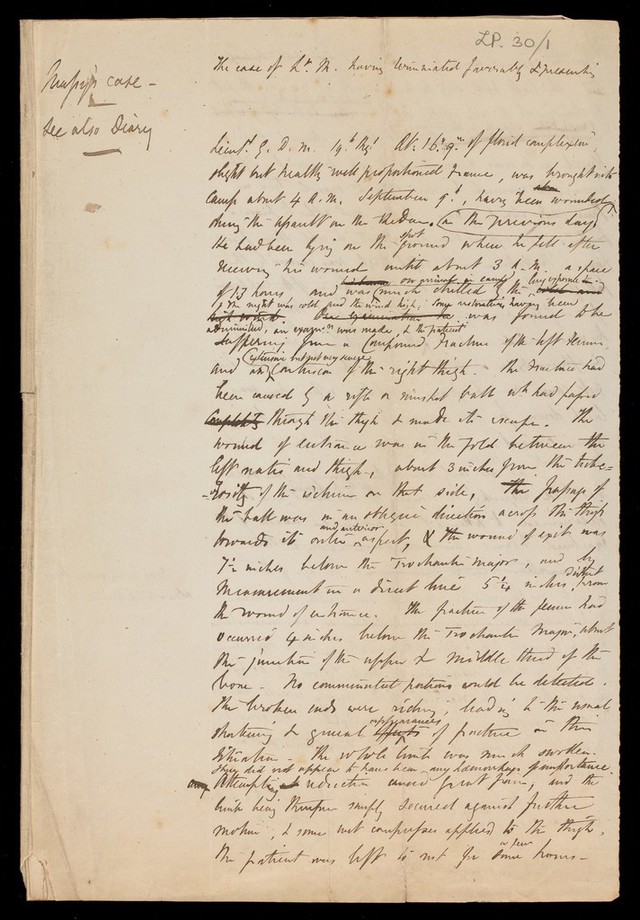 LP. 30/1
The case of Lt. M. having terminated favorably & presenting
case -
See also Diary
Lieut. G. D. M. 19th Regt. Æt. 16 9/12 of florid complexion,
slight but healthy well proportioned frame, was brought into
Camp about 4 A.M. September 9th, having been wounded
during the assault on the Redan on the previous day.
He had been lying on the spot ground where he fell after
receiving his wound until about 3 A.M. a space
of 13 hours and was much chilled by the exposure
as the night was cold and the wind high. Some restoratives having been
administered, an examn. was made, & the patient was found to be
suffering from a Compound Fracture of the left Femur
and an extensive but not very severe Contusion of the right thigh. The Fracture had
been caused by a rifle or musket ball wh. had passed
completely through the thigh & made its escape. The
wound of entrance was in the fold between the
left natis and thigh, about 3 inches from the tube-
-rosity of the ischium on that side, the passage of
the ball was in an oblique direction across the thigh
towards its outer and anterior aspect, & the wound of exit was
7 1/2 inches below the Trochanter major, and by
measurement in a direct line 5 1/4 inches distant from
the wound of entrance. The fracture of the femur had
occurred 4 inches below the Trochanter Major, about
the junction of the upper & middle third of the
bone - No comminuted portions could be detected.
The broken ends were riding, leading to the usual
shortening & general appearances of fracture in this
situation - The whole limb was much swollen.
There did not appear to have been any hæmorrhage of importance.
Attempting reduction caused great pain, and the
limb being therefore simply secured against further
motion, & some wet compresses applied to the thigh,
the patient was left to rest for a few some hours -